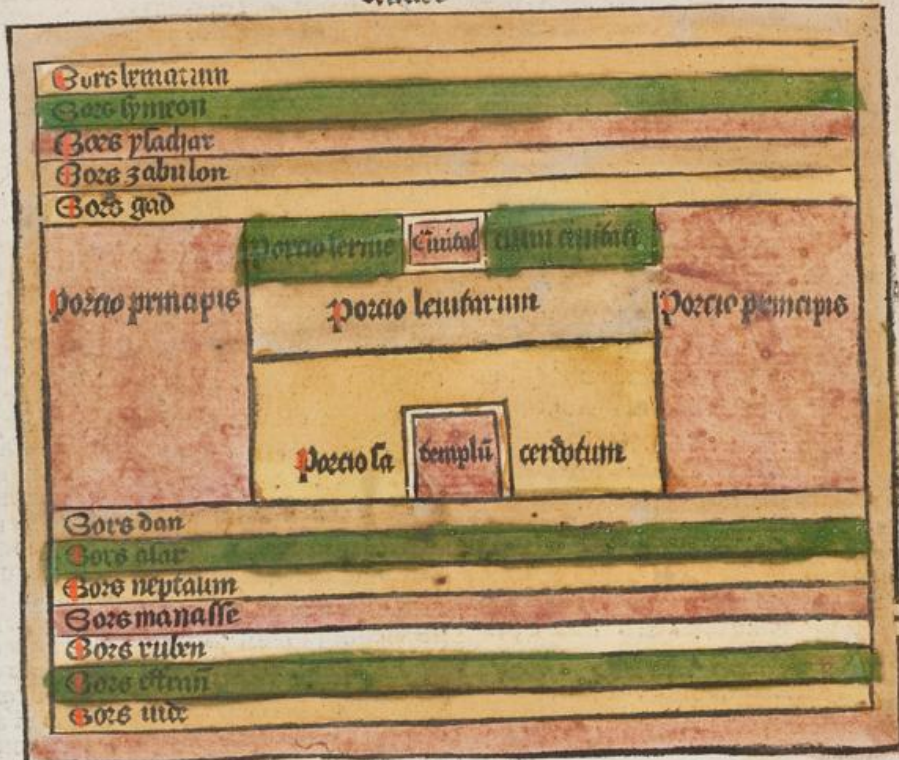 Sors lematinn
Sors symeon
Sors ysachar
Sors zabulon
Sors gad
Porcio ferme ciuitat cium ciuitati
Porcio principis
porcio leuitarum
Porcio principis
Porcio sa templū cerdotum
Sors dan
Sors asar
Sors neptalim
Sors manasse
Sors ruben
Sors
Sors iude